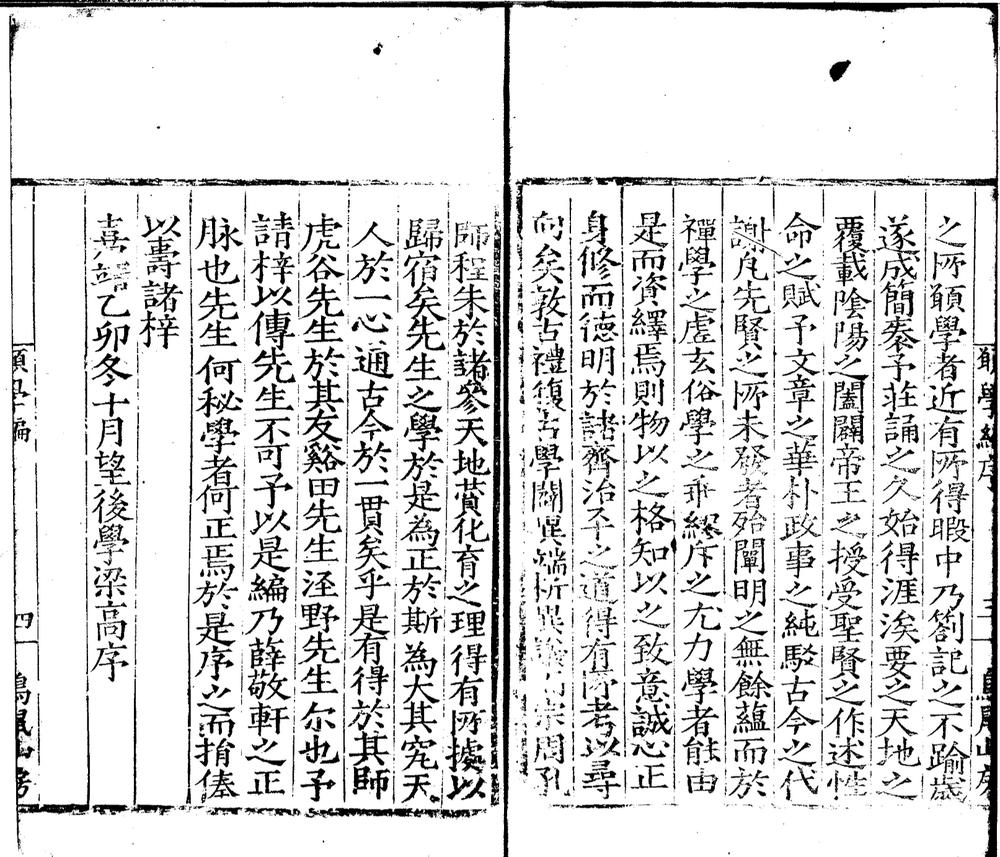 之所願學者近有所得暇中乃劄記之不踰歲
遂成簡袠予莊誦之久始得涯涘要之天地之
覆載陰陽之闔闢帝王之授受聖賢之作述性
命之賦予文章之華朴政事之純駁古今之代
謝凡先賢之所未發者殆闡明之無餘蘊而於
禪學之虛玄俗學之乖繆斥之尤力學者能由
是而資繹焉則物以之格知以之致意誠心正
身修而德明於諸齊治平之道得有所考以尋
向矣敦古禮復古學闢異端析異 宗周孔
師程朱於諸參天地贊化育之理得有所據以
歸宿矣先生之學於是為正於斯為大其究天
人於一心通古今於一貫矣乎是有得於其師
虎谷先生於其友谿田先生涇野先生尔也予
請梓以傳先生不可予以是編乃薛敬軒之正
脉也先生何秘學者何正焉於是序之而捐俸
以壽諸梓
嘉靖乙卯冬十月望後學梁高序
願學編序
願學編
四